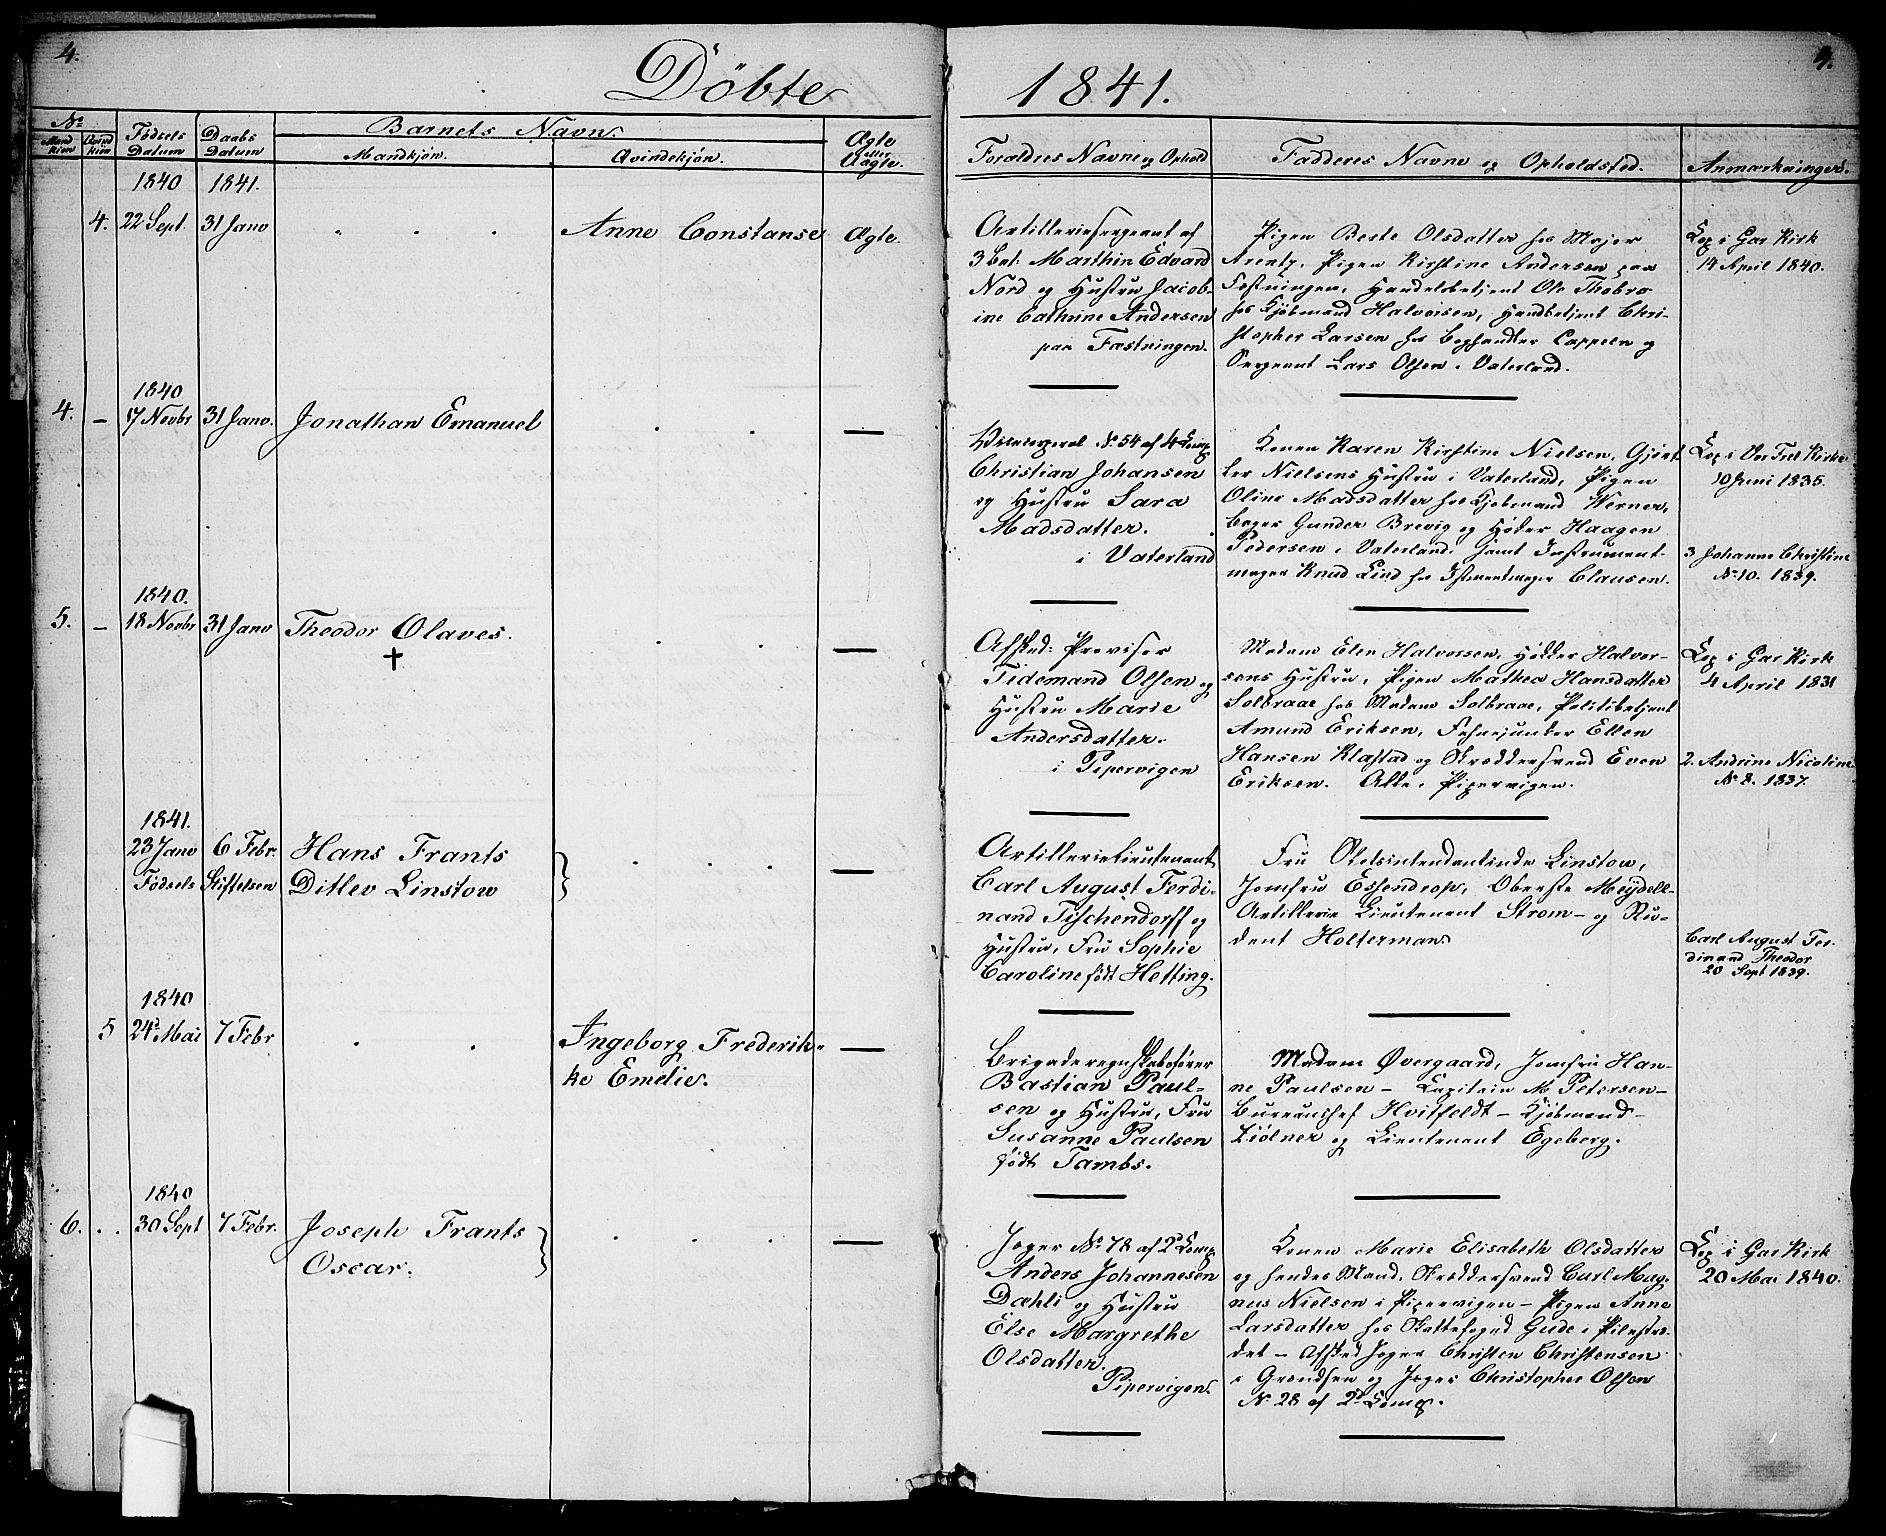 4.
Döbte
1841.
4.
No
Mandkien
Qvindkien
Födsels Datum
Daabs Datum
Barnets Navn.
Mandkjøn.
Qvindekjøn.
Ægte eller Uægte.
Forældres Navne og Ophold
Fadderes Navne og Opholdsted.
Anmærkninger.
1840 1841.
4. 22 Sept. 31 Janv
Anne Constanse
Ægte.
Artilleriesergeant af
3 Bat: Marthin Edvard
Nord og Hustru Jacob-
ine Cathrine Andersen
paa Fæstningen.
Pigen Beate Olsdatter hos Major
Arentz, Pigen Kirstine Andersen paa
Festningen, Handelsbetjent Ole Thobro
hos Kjöbmand Halvorsen, Handbetjent Chri-
stopher Larsen hos Boghandler Cappeln og
Sergeant Lars Olsen i Vaterland.
Cop i Gar Kirk
14 April 1840.
1840
4. – 17 Novbr 31 Janv. Jonathan Emanuel
—
Vicecorporal No 54 af 4 Comp
Christian Johansen
og Hustru Sara
Madsdatter.
i Vaterland
Konen Karen Kirstine Nielsen, Gjört-
ler Nielsens Hustru i Vaterland, Pigen
Oline Madsdatter hos Kjöbmand Werner,
Bager Gunder Brevig og Höker Haagen
Pedersen i Vaterland, samt Instrument-
mager Knud Lind hos Istmentmager Clausen.
Cop i Vor Frel Kirke
10 Juni 1835.
3 Johanne Christine
No 10. 1839.
1840.
5. – 18 Novbr 31 Janv Theodor Olaves.
†
—
Afsked: Provisor
Tidemand Olsen og
Hustru Marie
Andersdatter.
i Pipervigen
Madam Elen Halvorsen, Høkker Halvor-
sens Hustru, Pigen Mathea Hansdatter
Solbraae hos Madam Solbraae, Politibetjent
Amund Eriksen, Fanejunker Ellen
Hansen Klæstad og Skræddersvend Even
Eriksen. Alle i Pipervigen.
Cop i Gar Kirk
4 April 1831
2. Andrine Nicoline
No 2. 1837.
1841.
23 Janv 6 Febr. Hans Frants
Födsels Stiftelsen Ditlev Linstow
—
Artillerielieutenant
Carl August Ferdi-
nand Tischendorff og
Hustru, Fru Sophie
Caroline født Hetting.
Fru Slotsintendantinde Linstow,
Jomfru Essendrop, Oberste Meydell
Artillerie Lieutenant Strom – og Stu-
dent Holterman
Carl August Fer-
dinand Theodor
20 Sept 1839.
1840
5 24d Mai 7 Febr
Ingeborg Frederik-
ke Emelie.
—
Brigaderegnskabsfører
Bastian Paul-
sen og Hustru, Fru
Susanne Paulsen
født Tambs.
Madam Øvergaard, Jomfru Han-
ne Paulsen – Capitain M Petersen –
Bureauchef Hvitfeldt – Kjøbmand –
Ziölner og Lieutenant Egeberg.
1840
6. . . 30 Sept 7 Febr. Joseph Frants
Oscar.
—
Jæger No 78 af 2d Comp
Anders Johannesen
Dæhli og Hustru
Else Margrethe
Olsdatter.
Pipervigen.
Konen Marie Elisabeth Olsdatter
og hendes Mand, Skræddersvend Carl Mag-
nus Nielsen i Pipervigen – Pigen Anne
Larsdatter hos Skattefoged Gude i Pilestræ-
det – Afsked Jæger Christen Christensen
i Grændsen og Jæger Christopher Olsen
No 28 af 2d Comp.
Cop i Gar Kirk
20 Mai 1840.